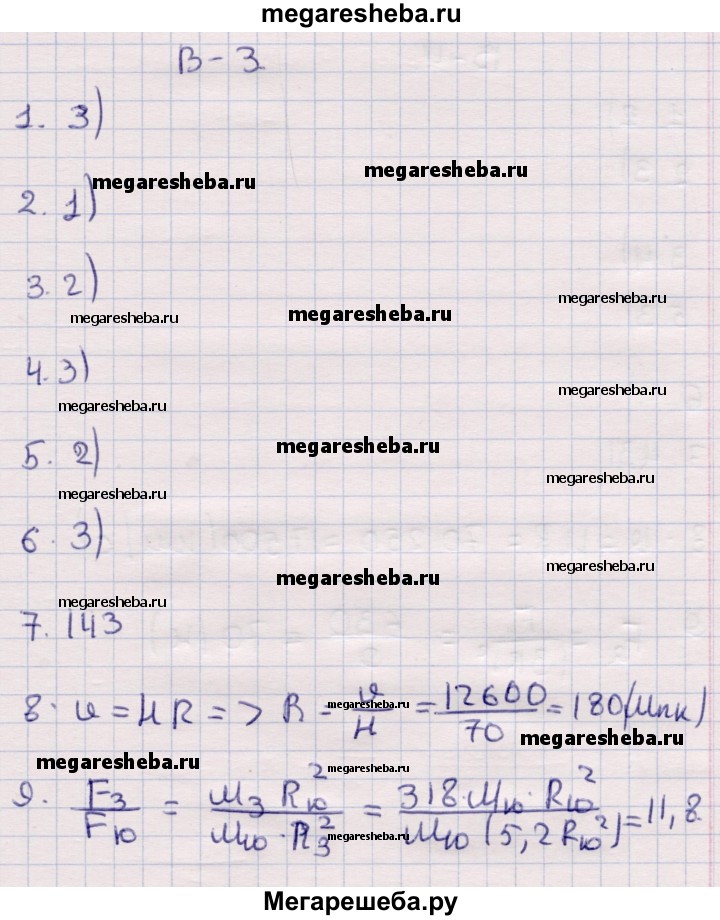 megaresheba.ru
В - 3
1. 3)
megaresheba.ru
megaresheba.ru
2. 1)
3. 2)
megaresheba.ru
megaresheba.ru
megaresheba.ru
4. 3)
megaresheba.ru
megaresheba.ru
megaresheba.ru
5. 2)
megaresheba.ru
megaresheba.ru
6. 3)
megaresheba.ru
megaresheba.ru
megaresheba.ru
7. 143
8. υ = HR => R = υ/H = 12600/70 = 180 (Мпк)
megaresheba.ru
megaresheba.ru
megaresheba.ru
megaresheba.ru
9. F₃/Fю = m₃ Rю²/mю · R₃² = 318 · mю · Rю²/mю (5,2 Rю²) = 11,8
megaresheba.ru
Мегарешеба.ру